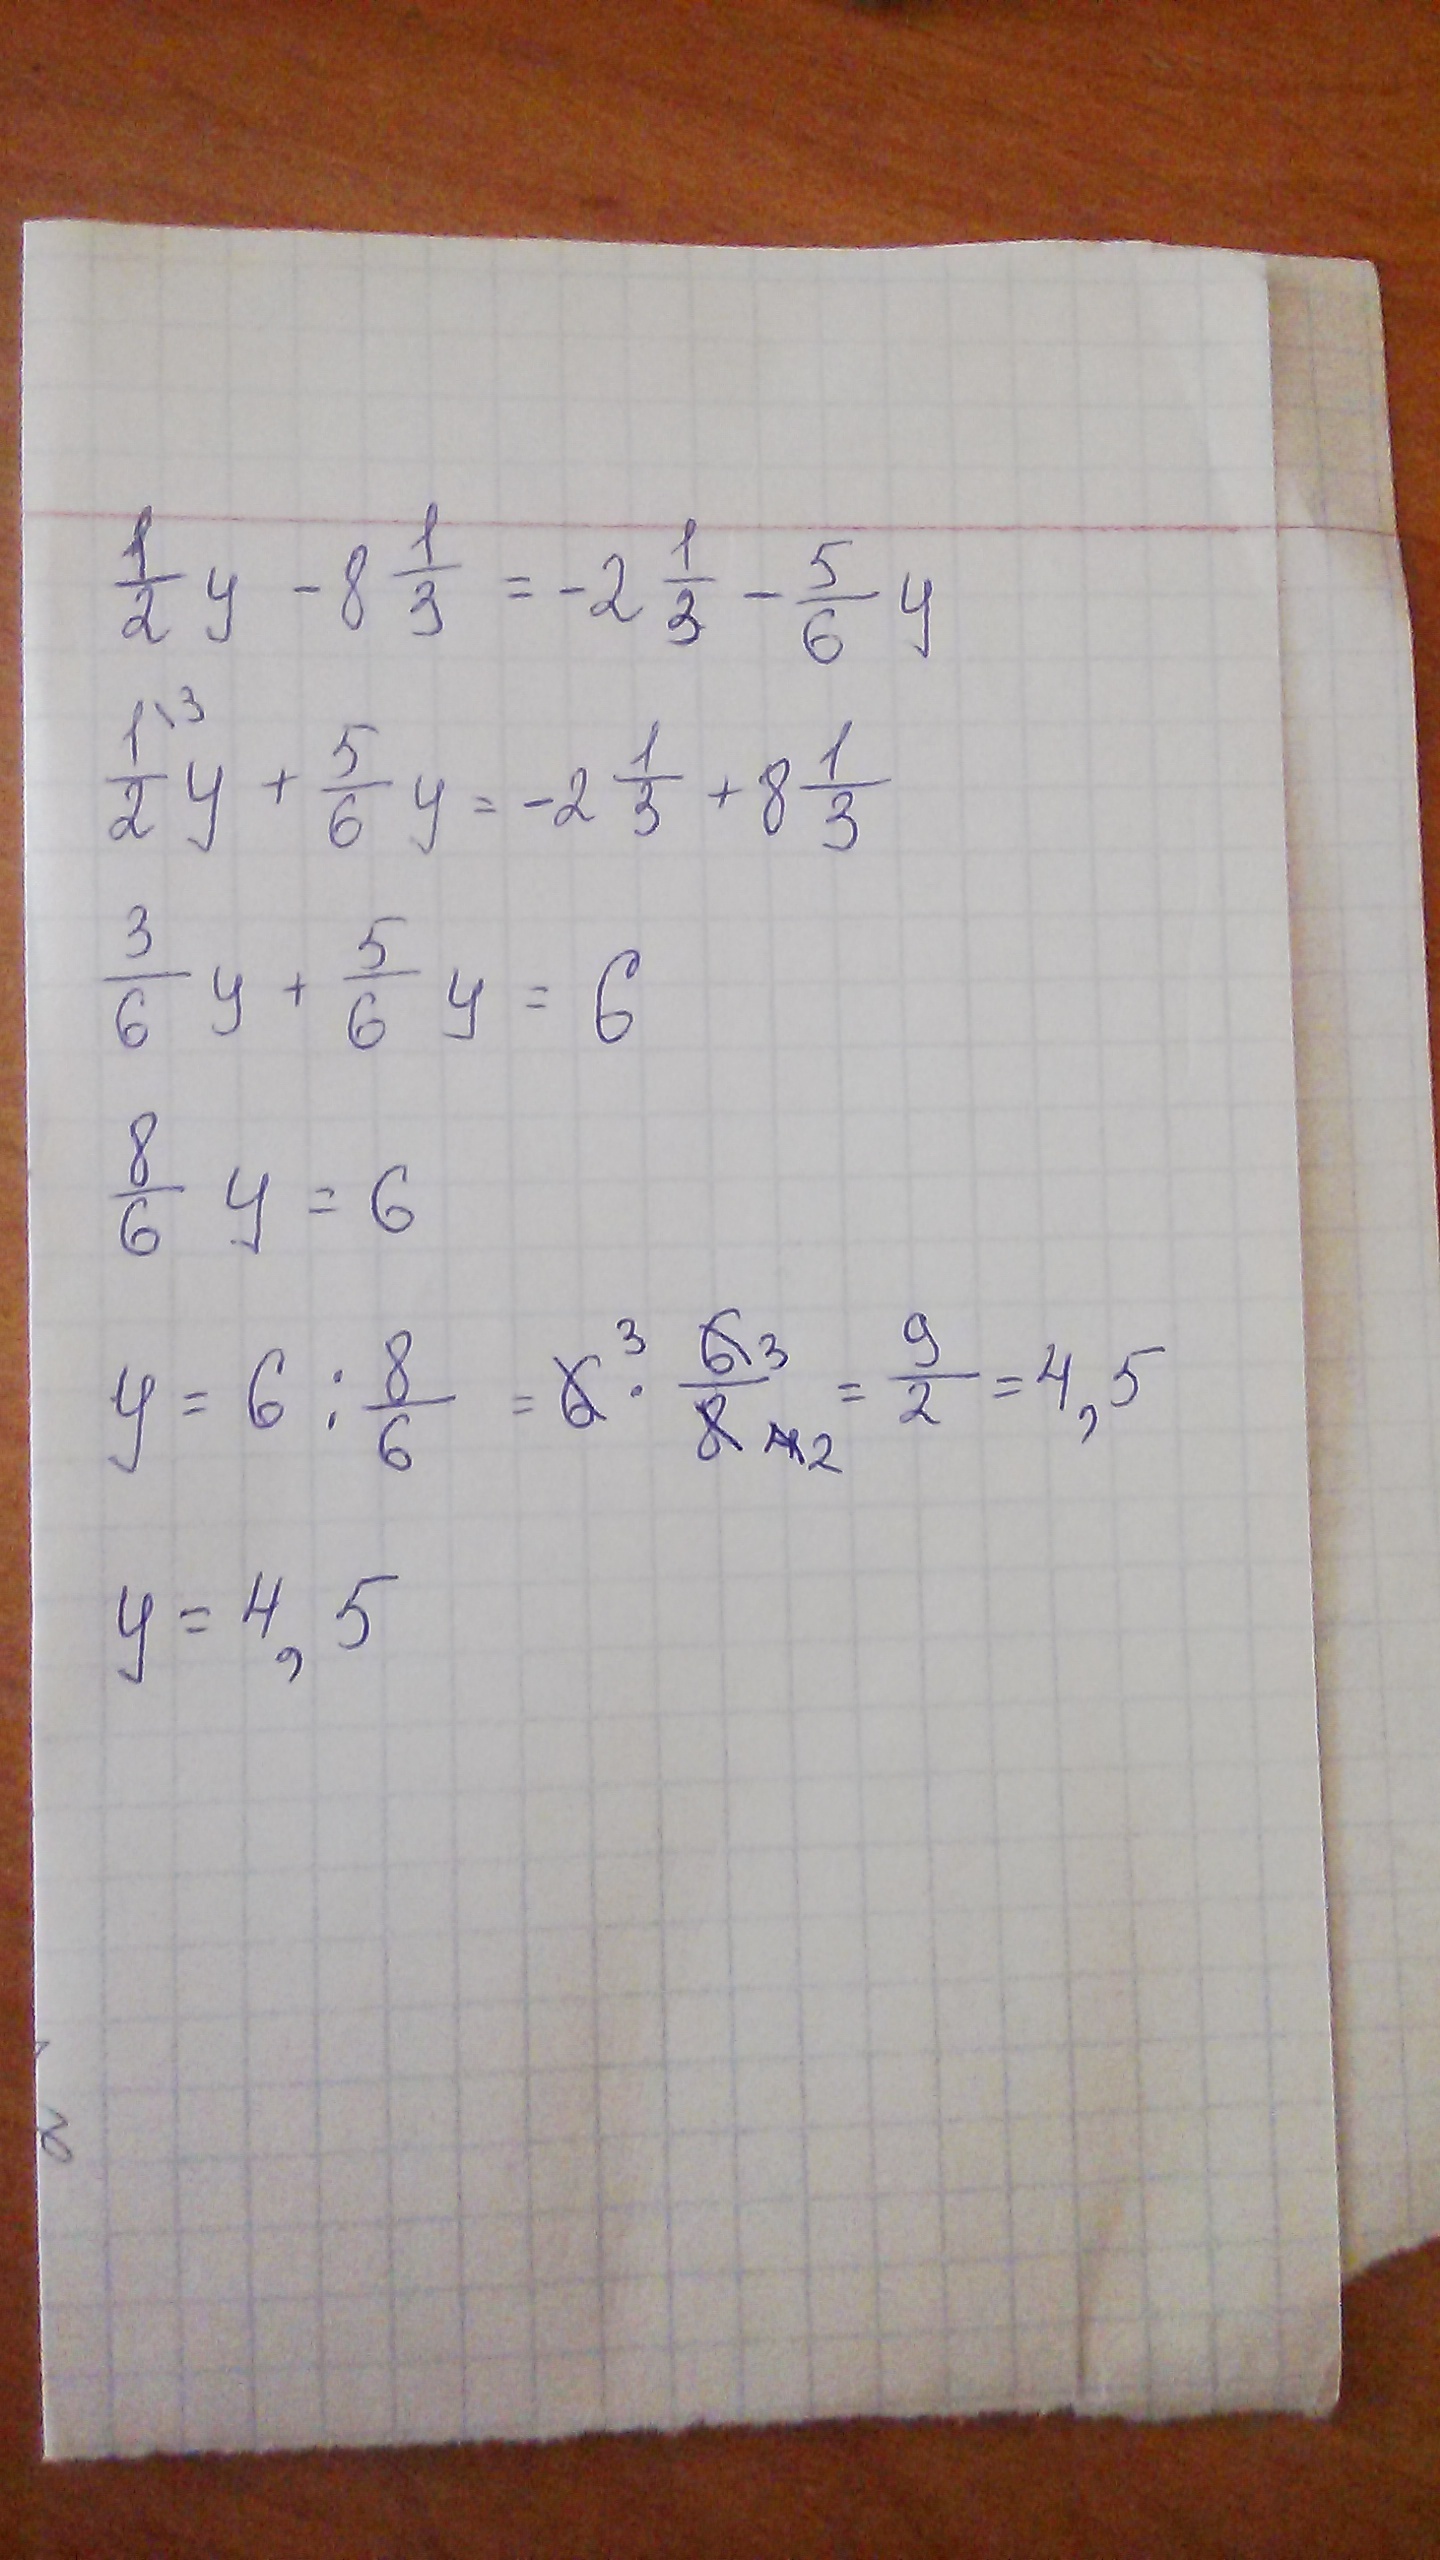 1/2 y - 8 1/3 = -2 1/3 - 5/6 y
1\3/2 y + 5/6 y = -2 1/3 + 8 1/3
3/6 y + 5/6 y = 6
8/6 y = 6
y = 6 : 8/6 = 6 3 · 6 3/8 4 2 = 9/2 = 4,5
y = 4,5